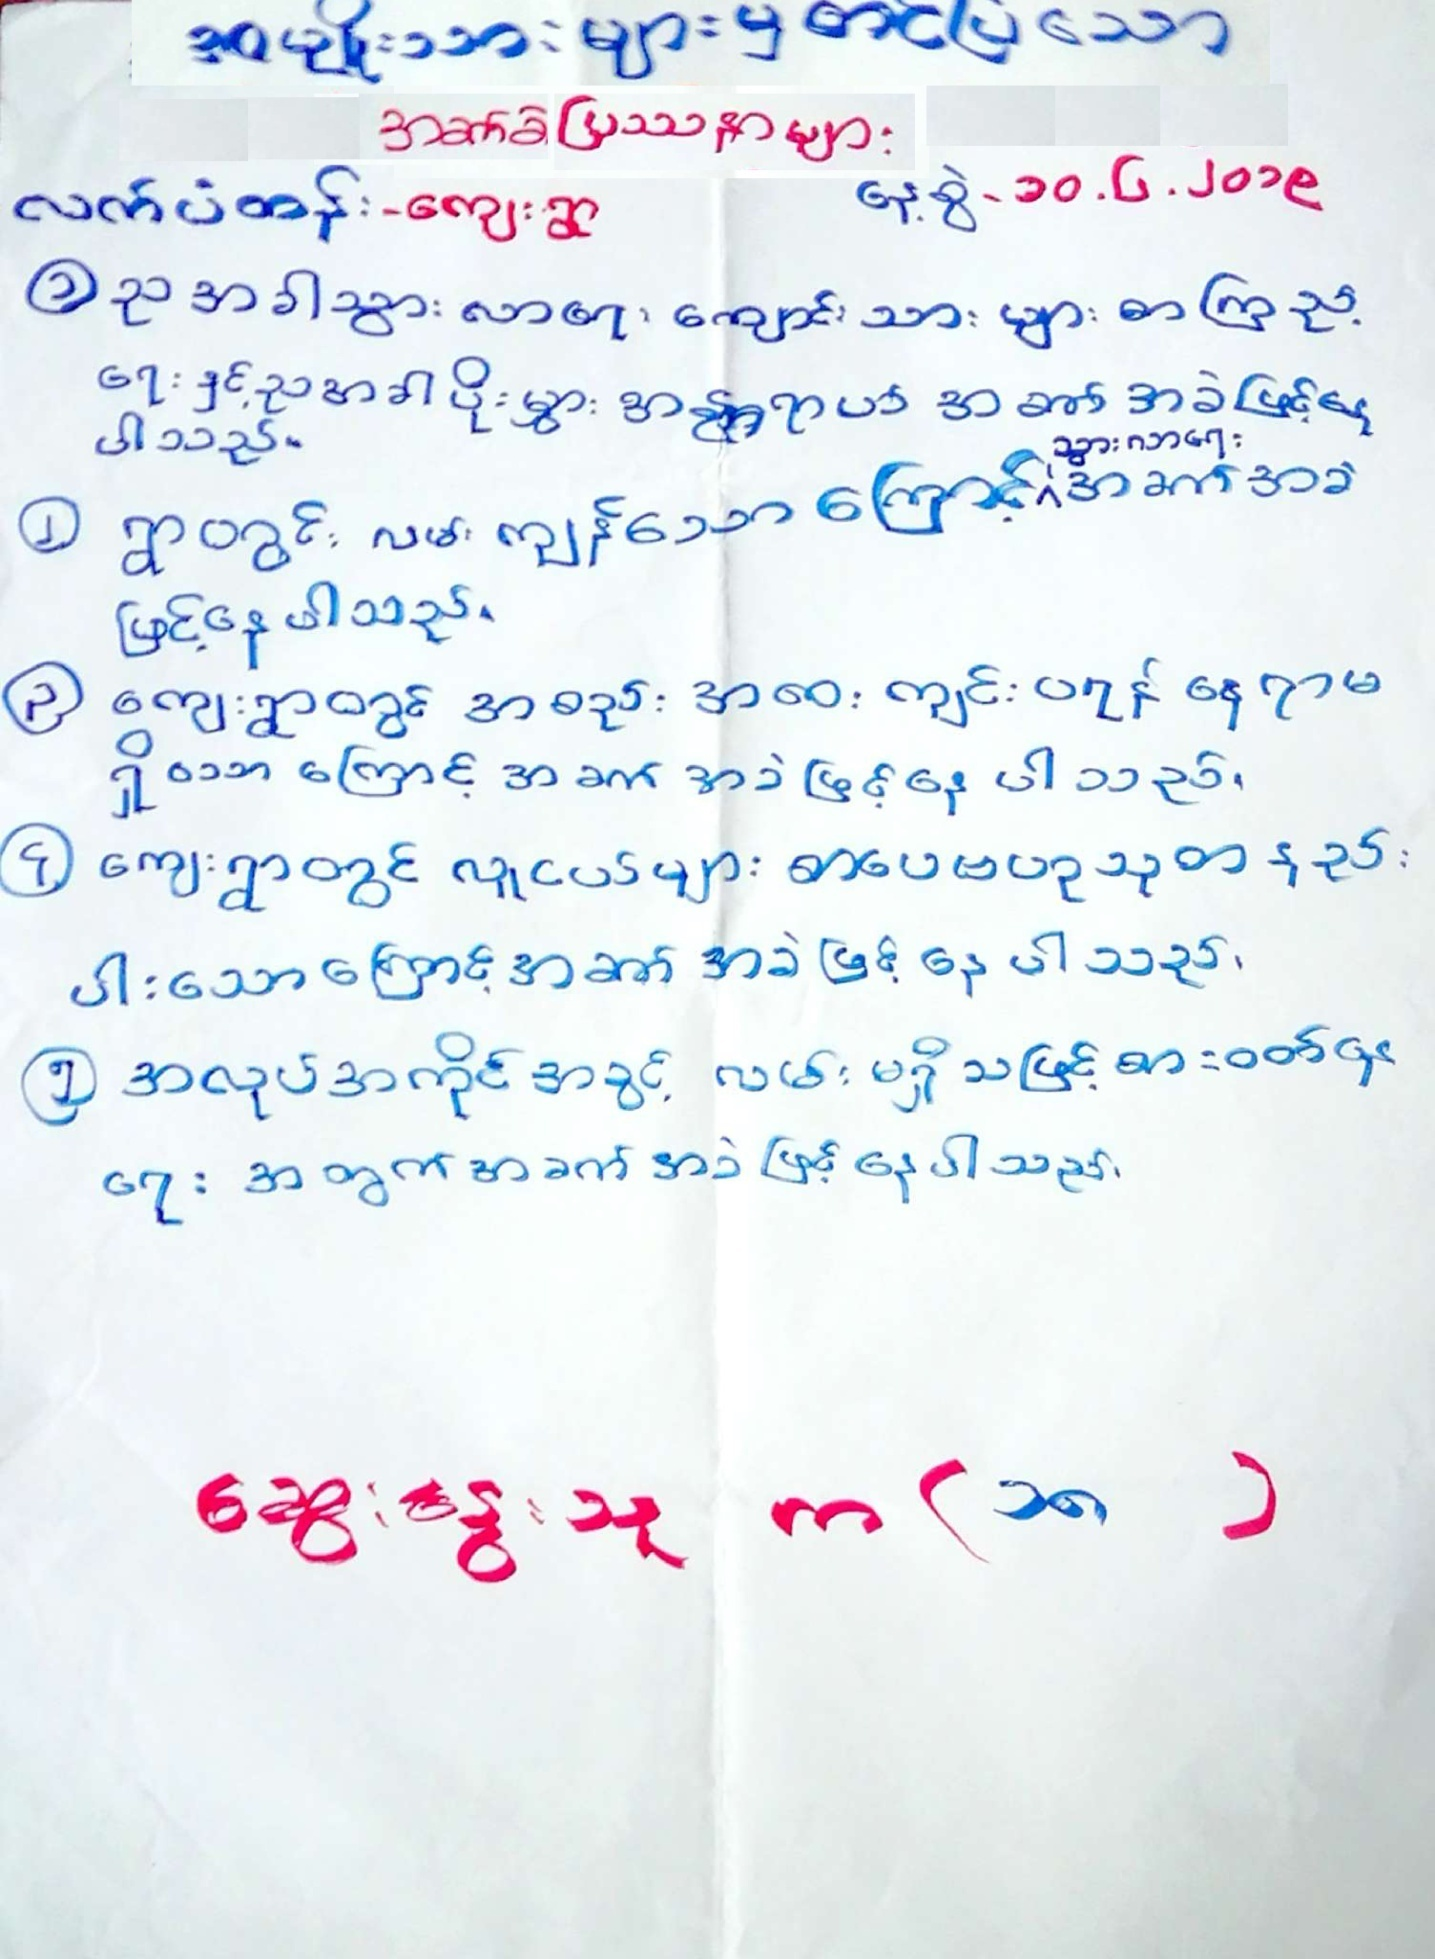 အမျိုးသားများမှ တင်ပြသော
အခက်ခဲပြဿနာများ
လက်ပံတန်း-ကျေးရွာ
နေ့စွဲ-၁၀.၆.၂၀၁၉
၁ ညအခါသွားလာရေး ကျောင်းသားများ စာကြည့်
ရေးနှင့်ညအခါပိုးမွှားအန္တရာယ် အခက်အခဲဖြင့်နေ
ပါသည်။
သွားလာရေး
၂ ရွာတွင်း လမ်းကျဉ်သော ကြောင့် အခက်အခဲ
ဖြင့်နေပါသည်။
၃ ကျေးရွာတွင် အစည်းအဝေး ကျင်းပရန် နေရာမ
ရှိသောကြောင့် အခက်အခဲဖြင့်နေပါသည်။
၄ ကျေးရွာတွင် လူငယ်များ စာပေဗဟုသုတနည်း
ပါးသောကြောင့် အခက်အခဲဖြင့်နေပါသည်။
၅ အလုပ်အကိုင်အခွင့် လမ်းမရှိသဖြင့် စားဝတ်နေ
ရေးအတွက်အခက်အခဲဖြင့်နေပါသည်။
ဆွေးနွေးသူ ကာ ( ၁၈ )